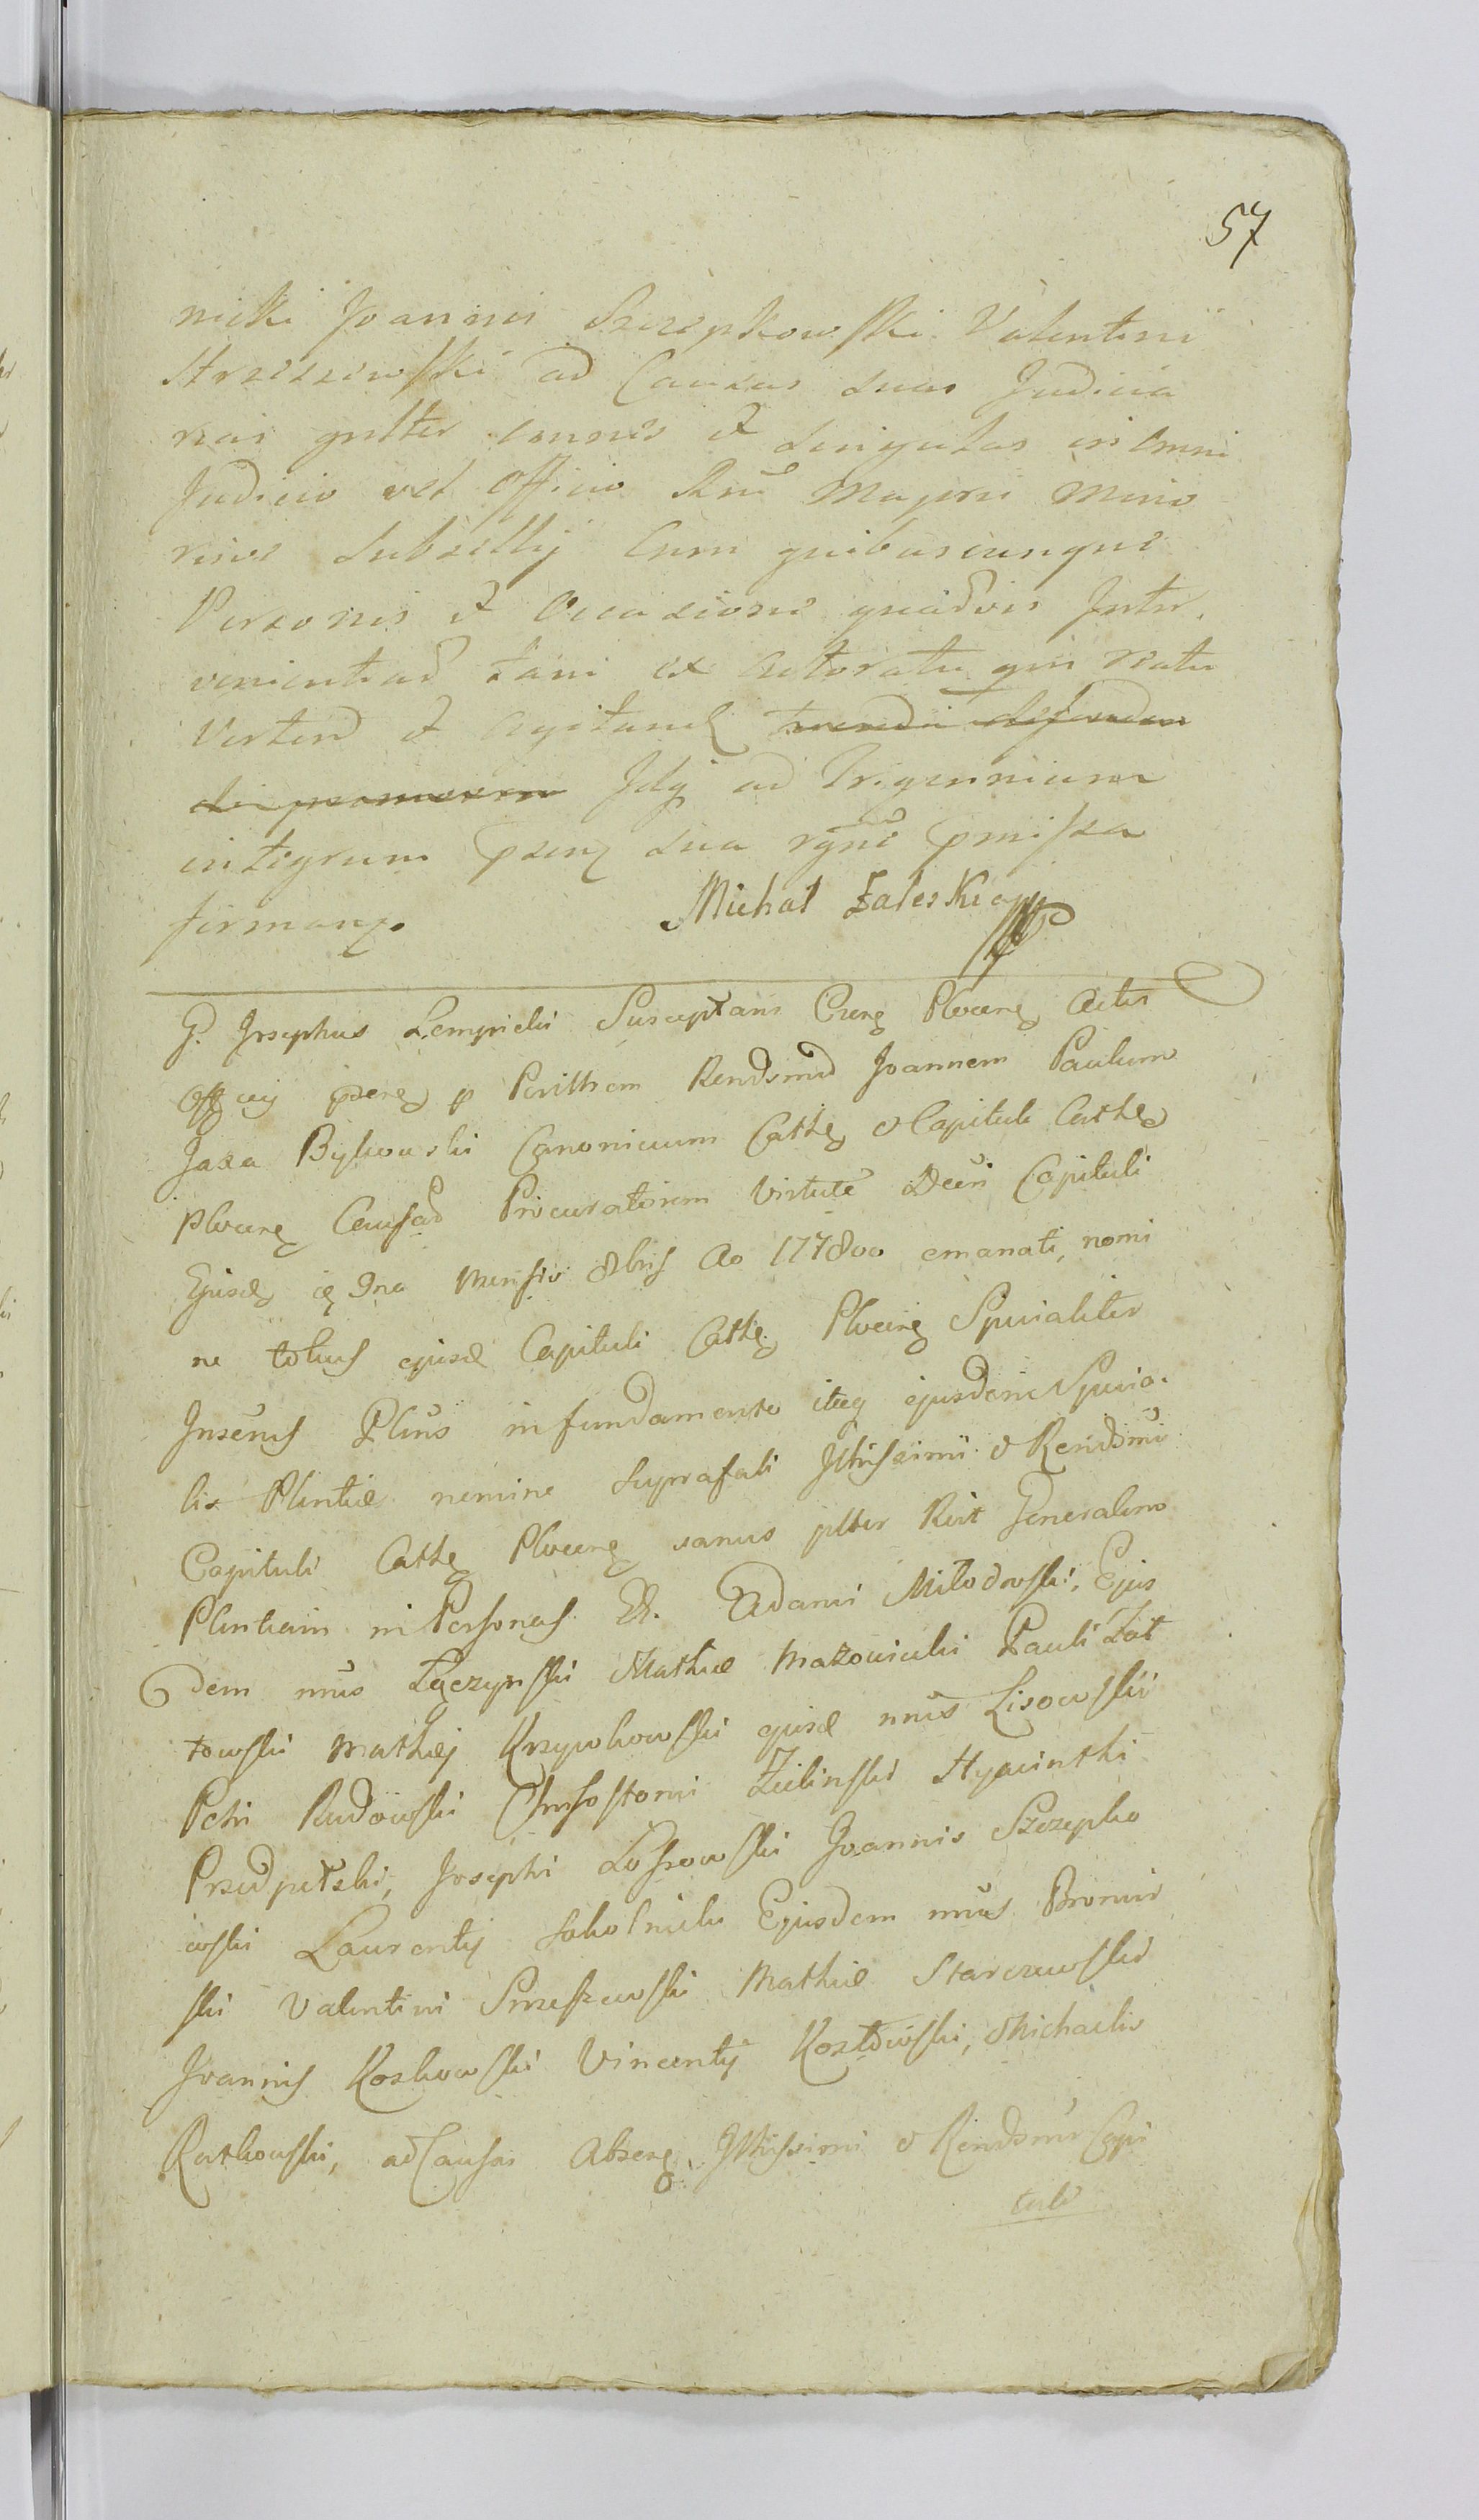 57
nicki Joannis Szczepkowski Valentini
Strzeszewski ad Causas suas Judicia
rias gnlter omnes et singulas in omni
Judicio vel Officio Rni Majoris Mino
risve Subsellij Cum quibuscunque
Personis et Occasione quadvis Inter.
venientiad tam ex actoratu qm reatu
Vertend et Agitand tuendi defenden
di promoven Idq ad Trigennium
integrum psenz sua rgne pmissa
firmanz.
Michał Zaleski mpp
G. Josephus Lempicki Susceptans Crens Plocens Actis
Offcij psens p Perillrem Rendsmd Joannem Paulum
Jaxa Bykowski Canonicum Cathe et Capituli Cathe
Plocens Causad Procuratorem Virtute Decri Capituli
Ejusd 9na Mensis 8bris Ao 1778vo emanati, nomi
ne totius ejusd Capituli Cathe Plocens Specialiter
Insems Plnus in fundamento itaq ejusdem Specia.
lis Plentiæ nomine suprafati Illrissimi et Rendsmi
Capituli Cathe Plocens vanus plter Rert Generalem
Plentiam in Personas G. Adami Miłodrowski, Ejus
dem nnis Łączynski Mathiæ Mazowiecki Pauli Zał
towski Mathiæj Krzywkowski ejusd nnis Lisowski
Petri Rudowski Chrisostomi Zielinski Hyacinthi
Przedpełski, Josephi Lossowski Joannis Szczepko
wski Laurentij Sokolnicki Ejusdem nnis Bromir
ski Valentini Strzeszewski Mathiæ Starczewski
Joannis Koskowski Vincentij Kozłowski, Michaelis
Ratkowski, ad Causas Absens Illrissimi et Rendsmi Capi
tuli